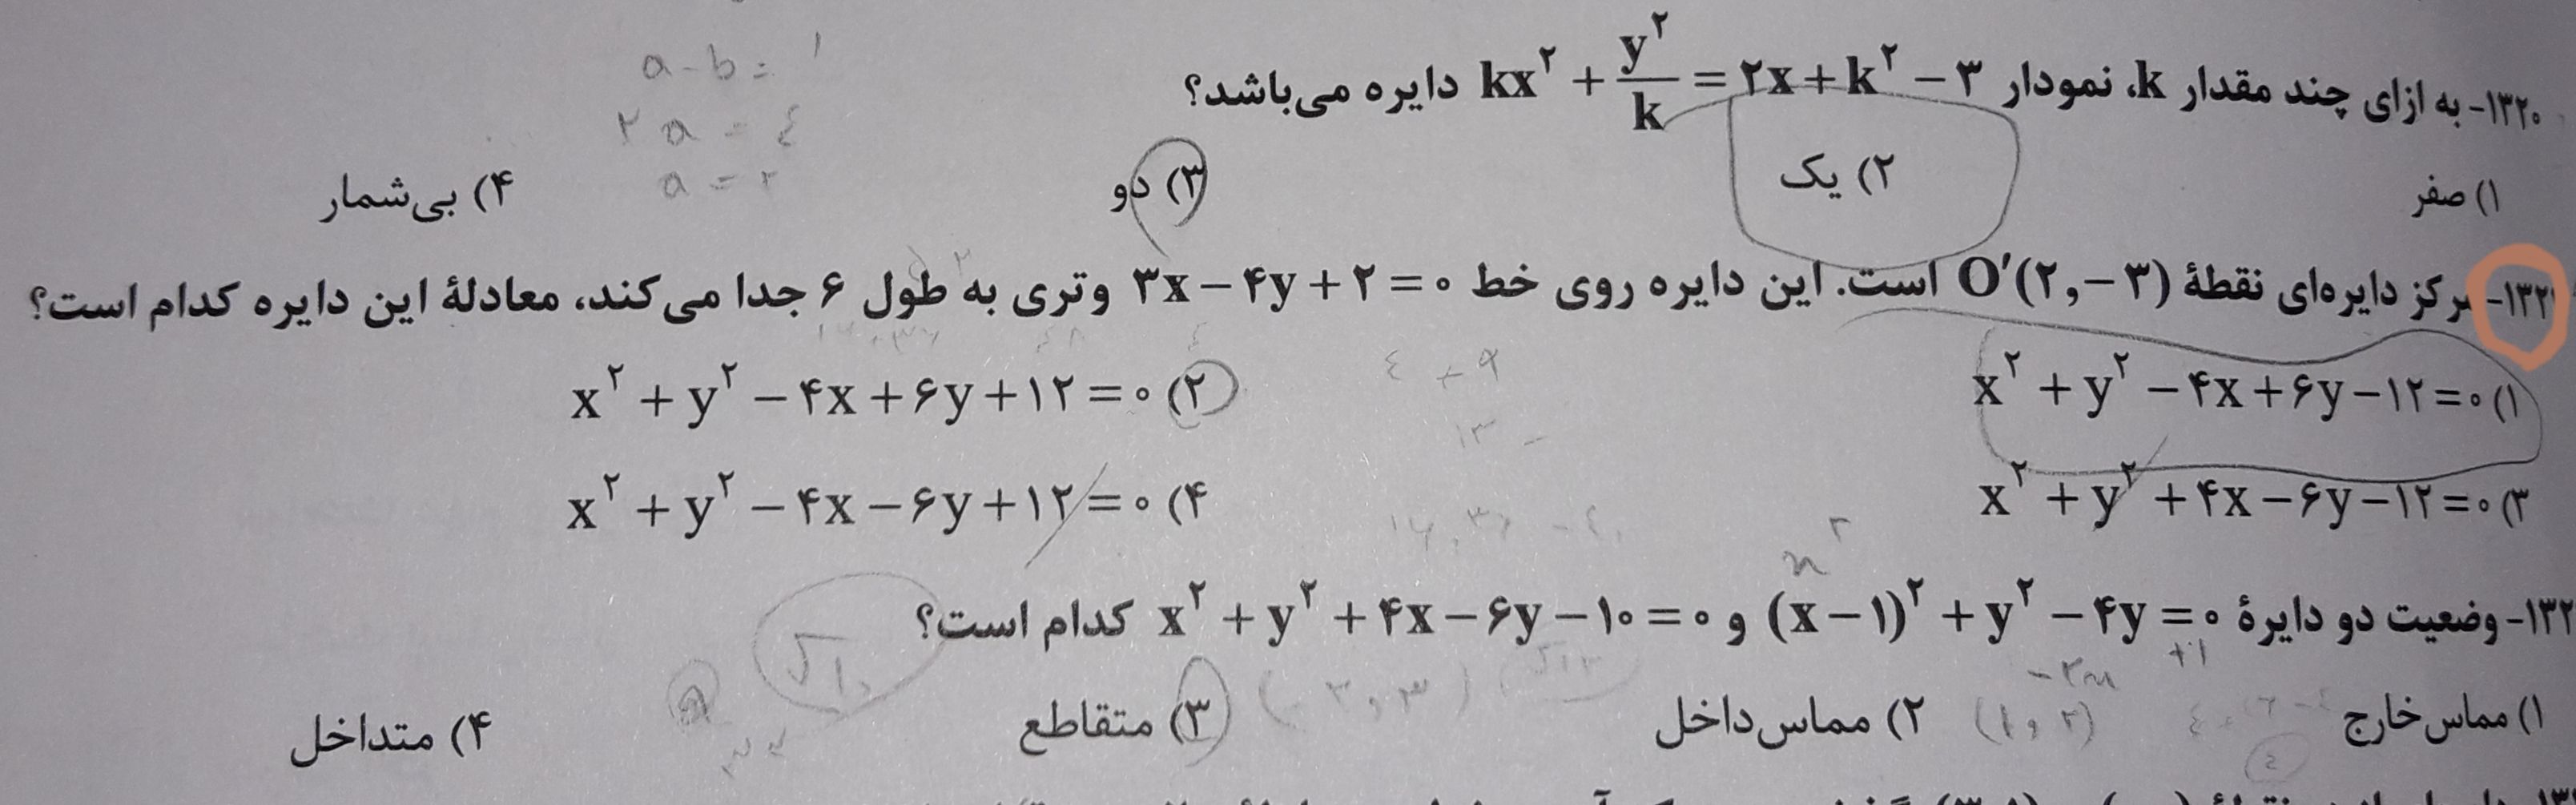 a - b = 1
۲a = ٤
a = ۲
۱۳۲۰- به ازای چند مقدار k، نمودار kx² + y²/k = ۲x + k² − ۳ دایره می‌باشد؟
۱) صفر ۲) یک ۳) دو ۴) بی‌شمار
۱۳۲- مرکز دایره‌ای نقطهٔ O′(۲,−۳) است. این دایره روی خط ۳x − ۴y + ۲ = ۰ وتری به طول ۶ جدا می‌کند، معادلهٔ این دایره کدام است؟
٤ + ۹
۱) x² + y² − ۴x + ۶y − ۱۲ = ۰ ۲) x² + y² − ۴x + ۶y + ۱۲ = ۰
۱۳ -
۳) x² + y² + ۴x − ۶y − ۱۲ = ۰ ۴) x² + y² − ۴x − ۶y + ۱۲ = ۰
۱۳۲- وضعیت دو دایرهٔ (x − ۱)² + y² − ۴y = ۰ و x² + y² + ۴x − ۶y − ۱۰ = ۰ کدام است؟
√۱۰
+۱
(-۲, ۳)
(۱, ۲)
۱) مماس خارج ۲) مماس داخل ۳) متقاطع ۴) متداخل